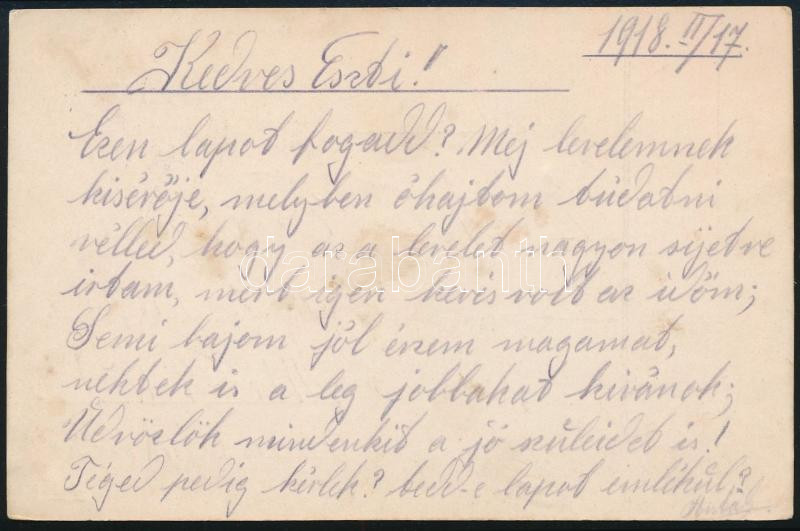 1918. II/17.
Kedves Eszti!!
Ezen lapot fogadd? Mej levelemnek
kisérője, melyben óhajtom tudatni
vélled, hogy az a levelet nagyon sijetve
irtam, mert igen kevés volt az időm;
Semi bajom jól érzem magamat,
néktek is a leg jobbakat kivánok;
Üdvözlök mindenkit a jó szüleidet is!
Téged pedig kérlek? tedd-e lapot emlékül?
darabanth